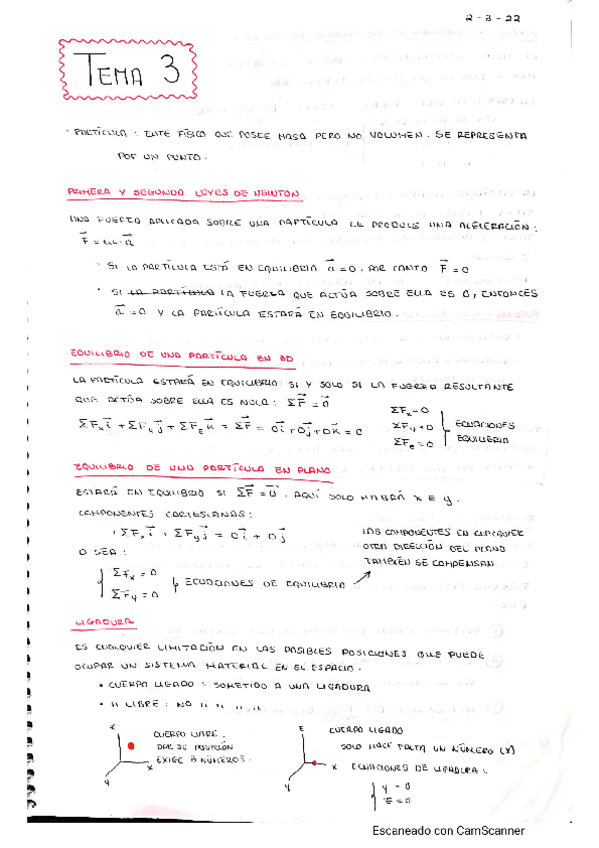 2-3-22
TEMA 3
· PARTÍCULA : ENTE FÍSICO QUE POSEE MASA PERO NO VOLUMEN. SE REPRESENTA
POR UN PUNTO.
PRIMERA Y SEGUNDA LEYES DE NEWTON
UNA FUERZA APLICADA SOBRE UNA PARTÍCULA LE PRODUCE UNA ACELERACIÓN :
F⃗ = m · a⃗
· SI LA PARTÍCULA ESTÁ EN EQUILIBRIO a⃗ = 0. POR TANTO F⃗ = 0
· SI LA PARTÍCULA LA FUERZA QUE ACTÚA SOBRE ELLA ES 0, ENTONCES
a⃗ = 0 Y LA PARTÍCULA ESTARÁ EN EQUILIBRIO.
EQUILIBRIO DE UNA PARTÍCULA EN 3D
LA PARTÍCULA ESTARÁ EN EQUILIBRIO SI Y SOLO SI LA FUERZA RESULTANTE
QUE ACTÚA SOBRE ELLA ES NULA : ΣF⃗ = 0⃗
ΣFx i⃗ + ΣFy j⃗ + ΣFz k⃗ = ΣF⃗ = 0i⃗ + 0j⃗ + 0k⃗ = 0
ΣFx = 0
ΣFy = 0
ΣFz = 0
ECUACIONES
EQUILIBRIO
EQUILIBRIO DE UNA PARTÍCULA EN PLANO
ESTARÁ EN EQUILIBRIO SI ΣF⃗ = 0⃗. AQUÍ SOLO HABRÁ x e y.
COMPONENTES CARTESIANAS :
ΣFx i⃗ + ΣFy j⃗ = 0i⃗ + 0j⃗
O SEA :
ΣFx = 0
ΣFy = 0
ECUACIONES DE EQUILIBRIO
LAS COMPONENTES EN CUALQUIER
OTRA DIRECCIÓN DEL PLANO
TAMBIÉN SE COMPENSAN
LIGADURA
ES CUALQUIER LIMITACIÓN EN LAS POSIBLES POSICIONES QUE PUEDE
OCUPAR UN SISTEMA MATERIAL EN EL ESPACIO.
• CUERPO LIGADO : SOMETIDO A UNA LIGADURA
• " LIBRE : NO " " " "
x
y
CUERPO LIBRE.
DAR SU POSICIÓN
EXIGE 3 NÚMEROS.
z
x
y
CUERPO LIGADO
SOLO HACE FALTA UN NÚMERO (X)
ECUACIONES DE LIGADURA :
y = 0
z = 0
Escaneado con CamScanner